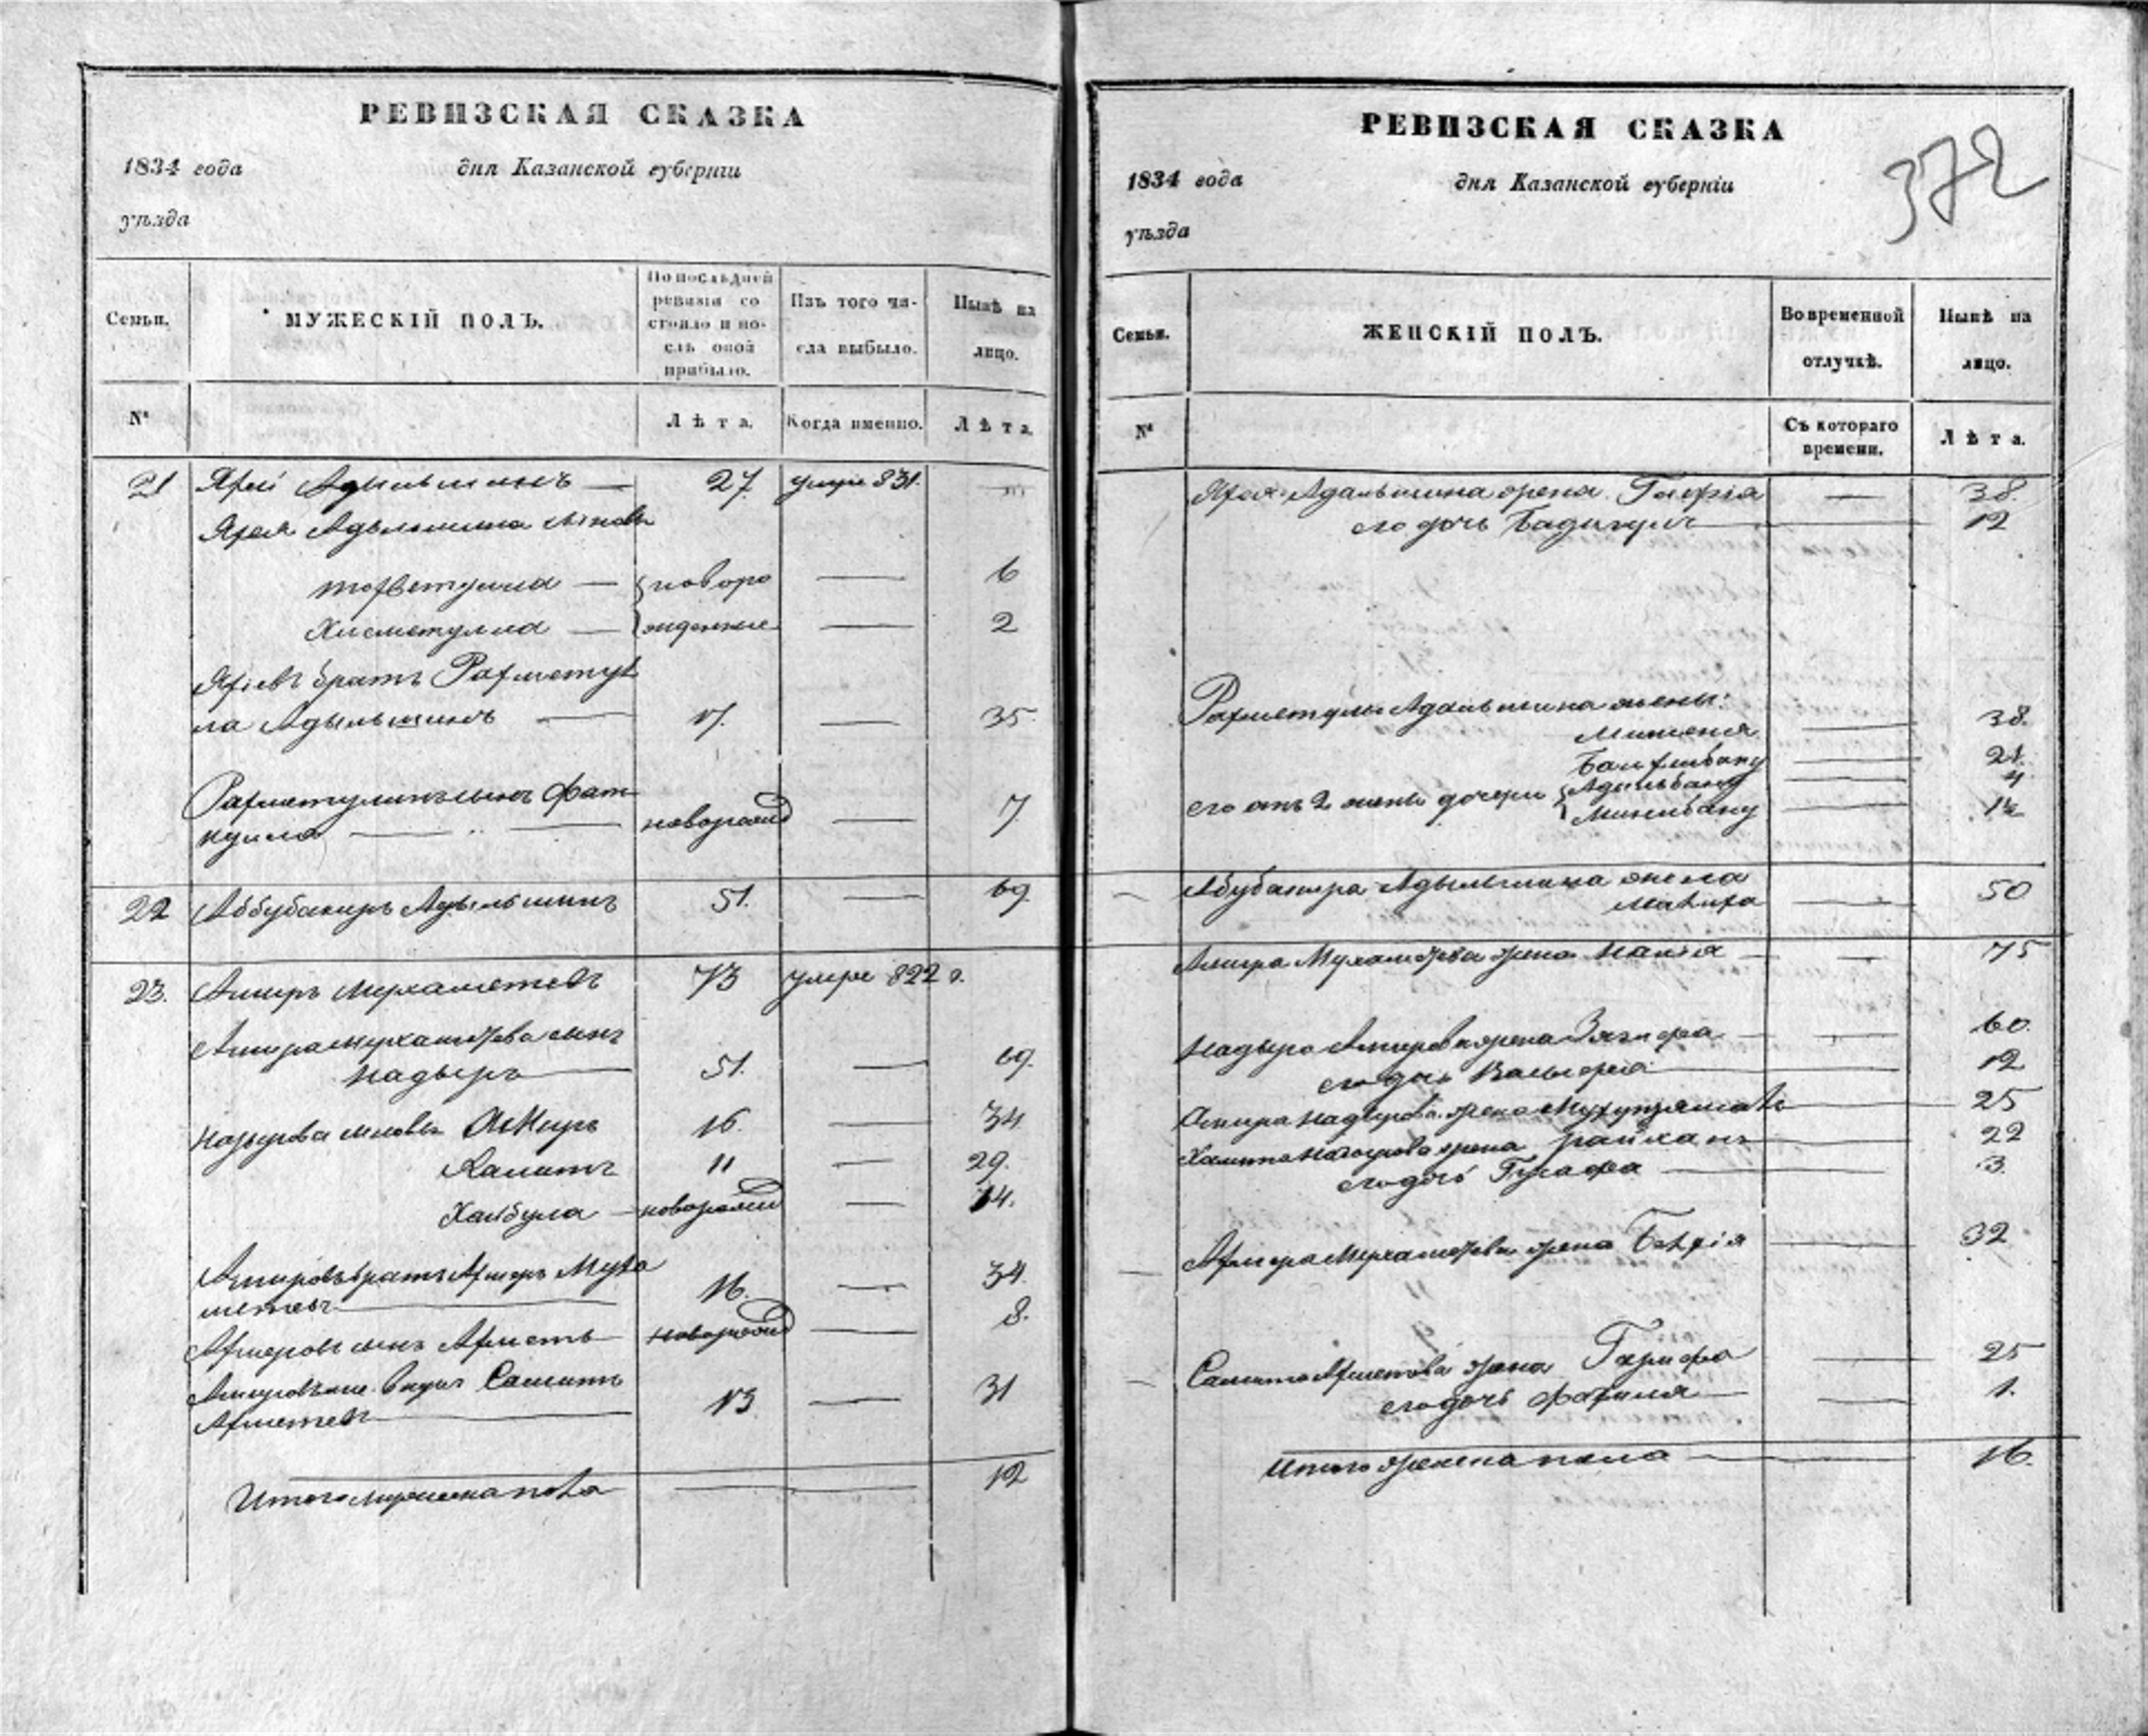 РЕВИЗСКАЯ СКАЗКА
1834 года дня Казанской губерніи
уѣзда
Семьи.
МУЖЕСКІЙ ПОЛЪ.
По послѣдней ревизіи состояло и послѣ оной прибыло.
Изъ того числа выбыло.
Нынѣ на лицо.
№
Лѣта.
Когда именно.
Лѣта.
21 Яфей Адыльшинъ — 27. умре 831.
Яфея Адыльшина сыновья
— новоро — 6
Хисметулла — жденные — 2
Яфѣевъ братъ Рахметул
ла Адыльшинъ — 17. — 35.
Рахметулинъ сынъ Фат
кулла — новорожд — 7
22 Аббубакиръ Адыльшинъ 51. — 69.
23. Амиръ Мухаметевъ 73 умре 822 г.
Амира Мухаметева сынъ
Надыръ — 51. — 69.
Надырова сыновья Аскиръ 16. — 34
Халитъ 11 — 29.
Хайбула — новорожд — 14.
Амировъ братъ Ахмеръ Муха
метевъ — 16. — 34.
Ахмеровъ сынъ Ахметь новорожд — 8.
внукъ Самитъ
Ахметевъ — 13. — 31
Итого мужеска пола — 12
РЕВИЗСКАЯ СКАЗКА
372
1834 года дня Казанской губерніи
уѣзда
Семьи.
ЖЕНСКІЙ ПОЛЪ.
Во временной отлучкѣ.
Нынѣ на лицо.
№
Съ котораго времени.
Лѣта.
Яфея Адальшина жена — 38.
его дочь — 12
Рахметулы Адальшина жены:
— 38.
— 21.
его отъ 2 жены дочери Адильбану — 4
Минлибану — 1½
Абубакира Адыльшина жена
— 50
Амира Мухаметева жена — 75
Надыра Амирова жена — 60.
его дочь — 12
Аскира Надырова жена — 25
Халита Надырова жена Райхана — 22
его дочь — 3.
Ахмера Мухаметева жена — 32
Самита Ахметова жена Гарифа — 25
его дочь — 1.
Итого женска пола — 16.